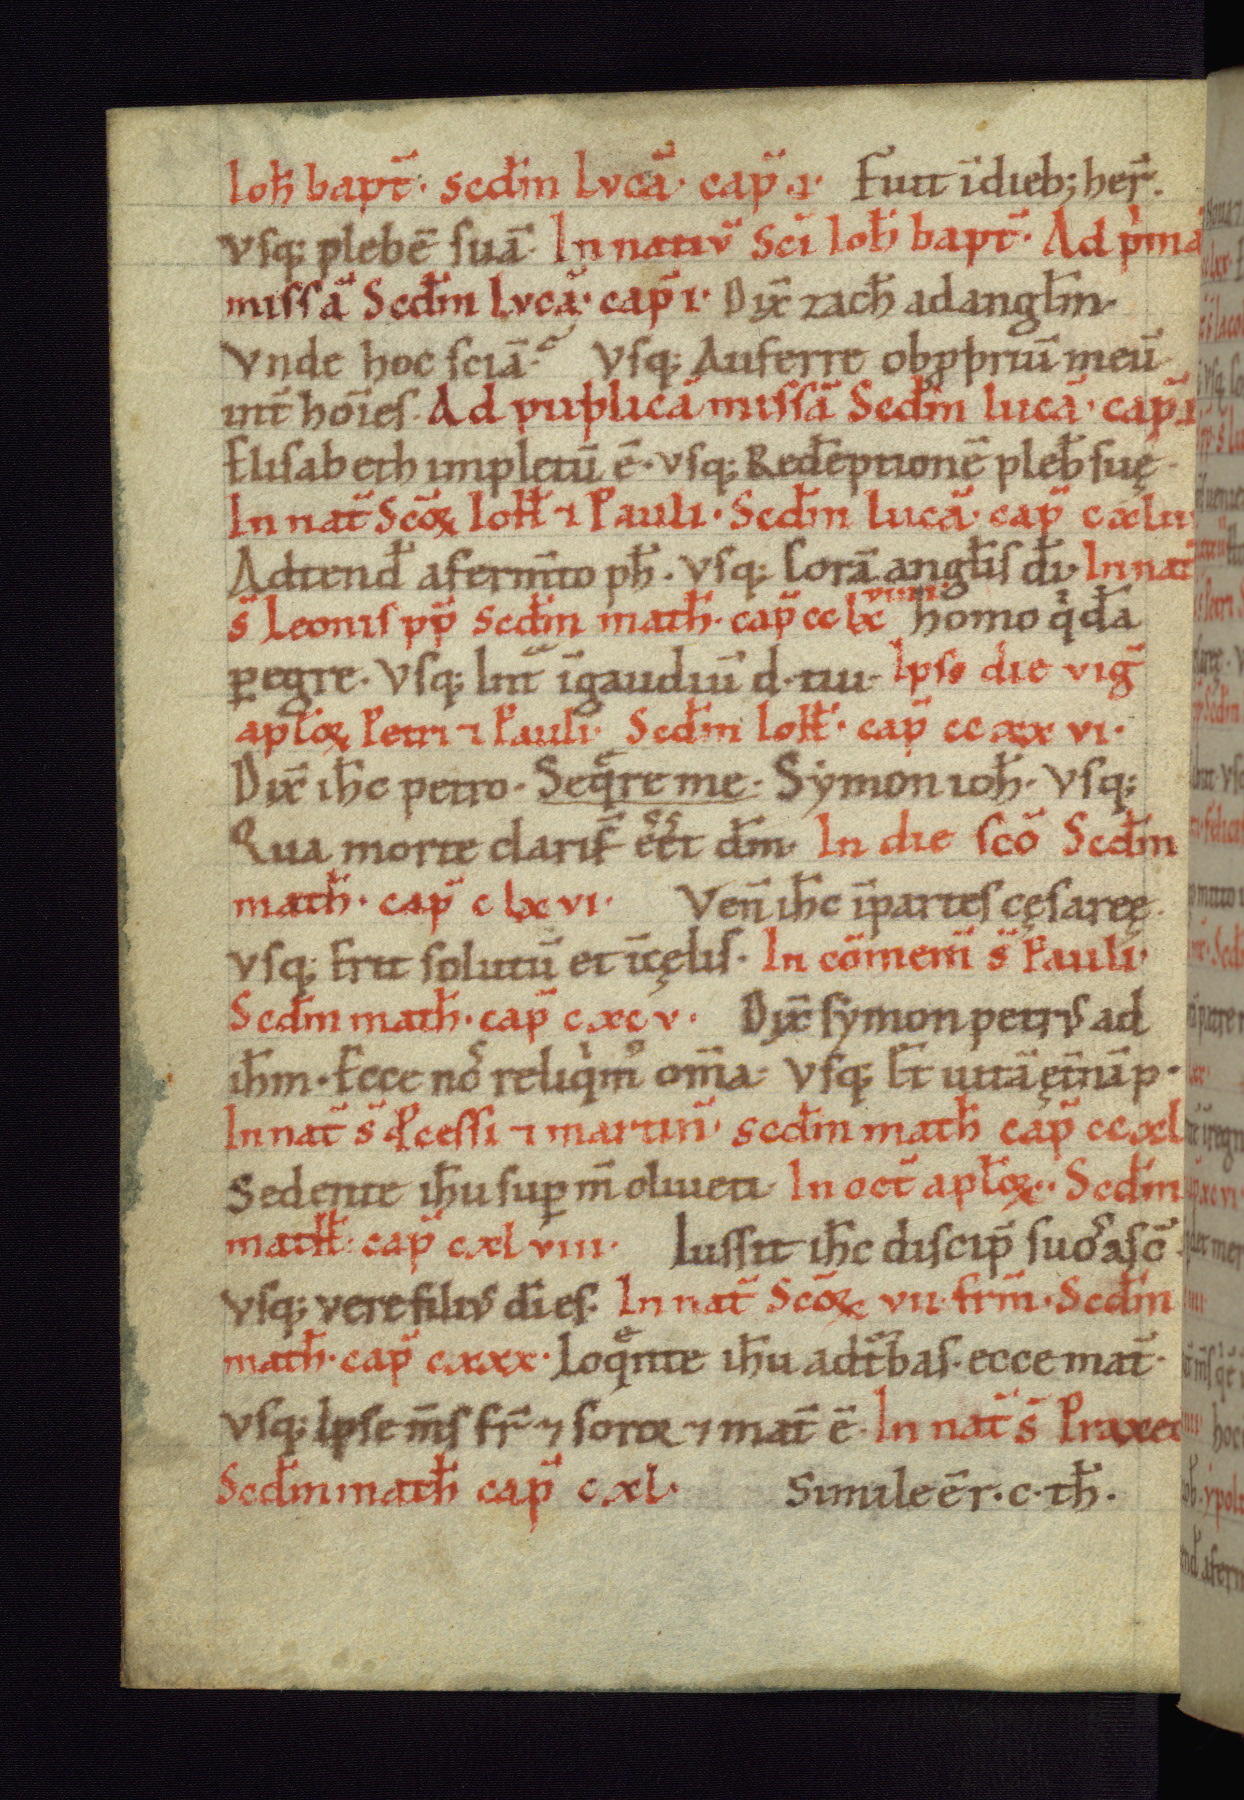 Ioh̄ bapt̄. Scd̄m Lvcā. cap̄ .i. Fuit īdieb; her̄.
vsq; plebē suā. In nativ̄ Sc̄i Ioh̄ bapt̄. Ad p̍mā
missā Scd̄m Lvcā. cap̄ i. Dix̄ zach̄ ad angl̄m
Vnde hoc sciā. Vsq; Auferre obpp̄riū meū
int̄ hōies. Ad puplicā missā Scd̄m lucā. cap̄ .i
Elisabeth impletū ē. vsq; Redēptionē pleb̄ suę.
In nat̄ Sc̄oꝝ Ioh̄ ⁊ Pauli. Scd̄m lucā. cap̄ cxlii
Adtend̄ a ferm̄to ph̄. Vsq; Corā angl̄is dī. In nat̄
s̄ Leonis pp̄ Scd̄m math̄. cap̄ cclx viiii homo q̍dā
ꝑegre. Vsq; Int̄ īgaudiū d. tui. Ipso die viḡ
apl̄oꝝ Petri ⁊ Pauli. Scd̄m Ioh̄. cap̄ ccxxvi.
Dix̄ ih̄c petro. Seqͤre me. Symon ioh̄. Vsq;
Qua morte clarif̄ eēt dm̄. In die scō Scd̄m
math̄. cap̄ clxvi. Ven̄ ih̄c īpartes cęsaręę.
vsq; Erit solutū et īcęlis. In cōmem̄ s̄ Pauli.
Scd̄m math̄. cap̄ cxcv. Dix̄ symon petrus ad
ih̄m. Ecce nos reliq̍m᷒ om̄a. Vsq; Et uitā ęt̄nā p.
In nat̄ s̄ ꝓcessi ⁊ martin̄. Scd̄m math̄ cap̄ ccxl
Sedente ih̄u suꝑ m̄ oliueti. In oct̄ apl̄oꝝ. Scd̄m
math̄. cap̄ cxlviii. Iussit ih̄c discip̄ suos asc̄.
vsq; vere filius d̄i es. In nat̄ Sc̄oꝝ vii. frm̄. Scd̄m
math̄. cap̄ cxxx. Loqͤnte ih̄u adt̄bas. ecce mat̄.
vsq; Ipse m̄s fr̄ ⁊ soror ⁊ mat̄ ē. In nat̄ s̄ Praxed
Scd̄m math̄ cap̄ cxl. Simile ē r. c. th̄.